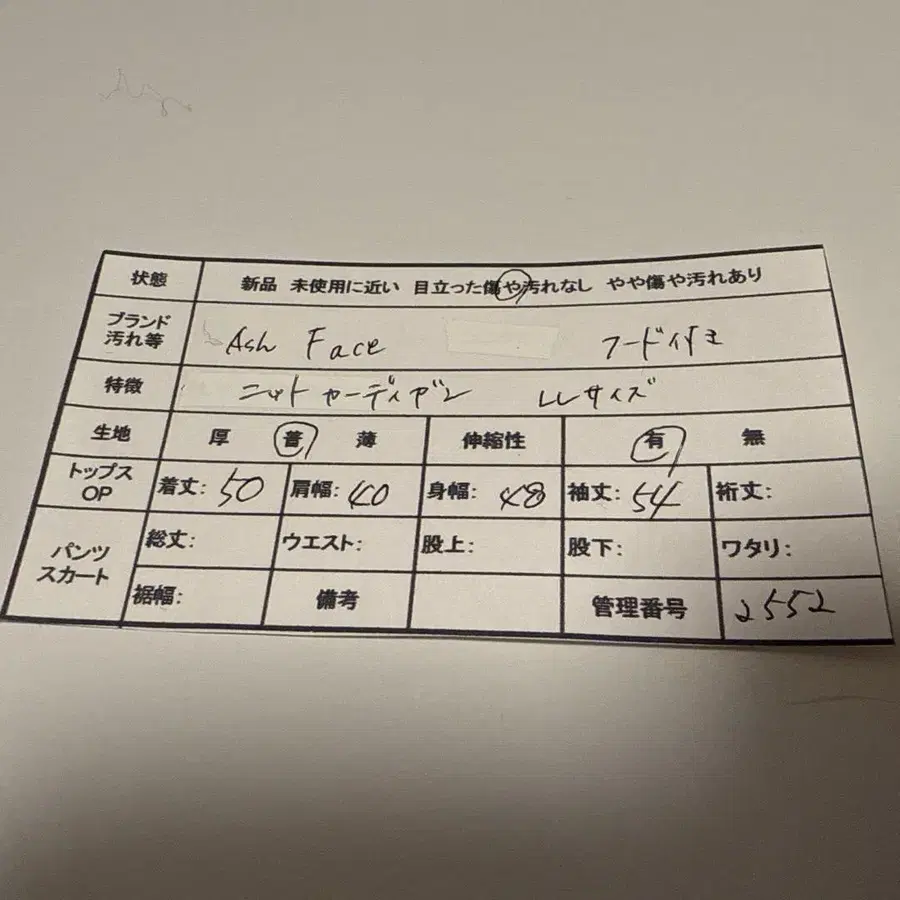 状態 新品 未使用に近い 目立った傷や汚れなし やや傷や汚れあり
ブランド
汚れ等 Ash Face フード付き
特徴 ニットカーディガン LLサイズ
生地 厚 普 薄 伸縮性 有 無
トップス
OP 着丈: 50 肩幅: 40 身幅: 48 袖丈: 54 裄丈:
パンツ
スカート 総丈: ウエスト: 股上: 股下: ワタリ:
裾幅: 備考 管理番号 2552